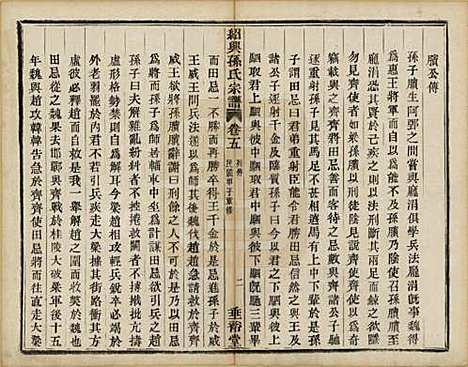 臏公傳
孫子臏生阿鄄之間嘗與龐涓俱學兵法龐涓旣事魏得
爲惠王將軍而自以爲能不及孫臏乃陰使召孫臏臏至
龐涓恐其賢於己疾之則以法刑斷其兩足而黥之欲隱
勿見齊使者如梁孫臏以刑徒陰見說齊使齊使以爲奇
竊載與之齊齊將田忌善而客待之忌數與齊諸公子馳
逐重射孫子見其馬足不甚相遠馬有上中下輩於是孫
子謂田忌曰君弟重射臣能令君勝田忌信然之與王及
諸公子逐射千金及臨質孫子曰今以君之下駟與彼上
駟取君上駟與彼中駟取君中駟與彼下駟旣馳三輩畢
紹興孫氏宗譜
卷五
列傳
民國甲子重修
二
垂裕堂
而田忌一不勝而再勝卒得王千金於是忌進孫子於威
王威王問兵法遂以爲師其後魏伐趙趙急請救於齊齊
威王欲將孫臏臏辭謝曰刑餘之人不可於是乃以田忌
爲將而孫子爲師居輜車中坐爲計謀田忌欲引兵之趙
孫子曰夫解雜亂紛糾者不控捲救鬬者不搏撠批亢擣
虛形格勢禁則自爲解耳今梁趙相攻輕兵銳卒必竭於
外老弱罷於內君不若引兵疾走大梁據其街路衝其方
虛彼必釋趙而自救是我一舉解趙之圍而收獘於魏也
田忌從之魏果去邯鄲與齊戰於桂陵大破梁軍後十五
年魏與趙攻韓韓告急於齊齊使田忌將而往直走大梁